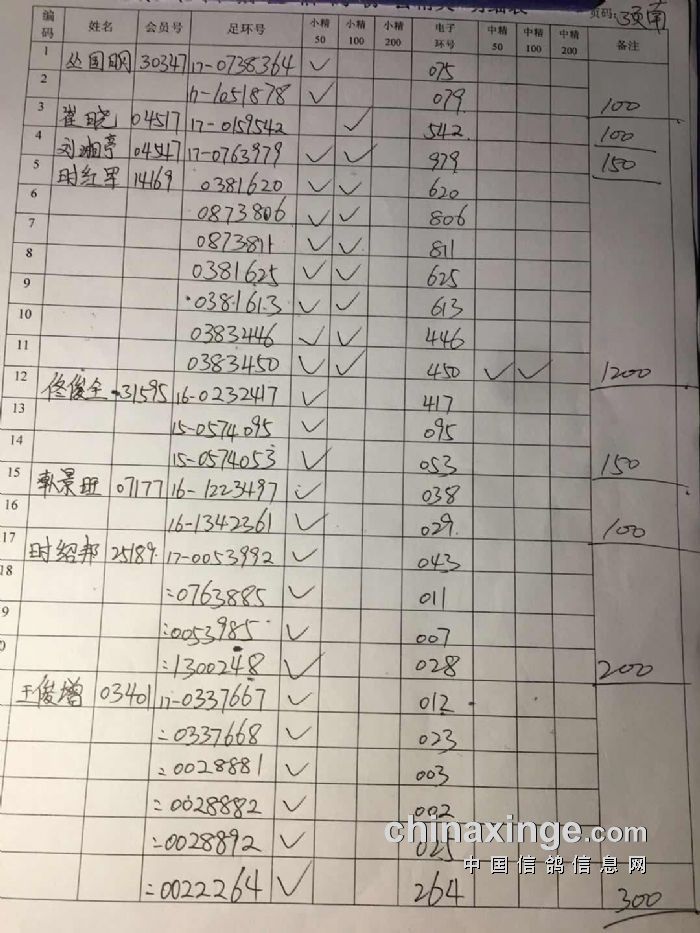 页码:
编码 姓名 会员号 足环号 小精50 小精100 小精200 电子环号 中精50 中精100 中精200 备注
1 丛国明 30347 17-0738364 ✓ 075
2 17-1051878 ✓ 079 100
3 崔晓 04517 17-0159542 ✓ 542 100
4 刘湘亭 04547 17-0763979 ✓ ✓ 979 150
5 时红军 14169 0381620 ✓ ✓ 620
6 0873806 ✓ ✓ 806
7 0873811 ✓ ✓ 811
8 0381625 ✓ ✓ 625
9 0381613 ✓ ✓ 613
10 0383446 ✓ ✓ 446
11 0383450 ✓ ✓ 450 ✓ ✓ 1200
12 佟俊全 31595 16-0232417 ✓ 417
13 15-0574095 ✓ 095
14 15-0574053 ✓ 053 150
15 景班 07177 16-1223497 ✓ 038
16 16-1342361 ✓ 029 100
17 时绍邦 25189 17-0053992 ✓ 043
18 =0763885 ✓ 011
9 =0053985 ✓ 007
0 =1300248 ✓ 028 200
王俊增 03401 17-0337667 ✓ 012
=0337668 ✓ 023
=0028881 ✓ 003
=0028882 ✓ 002
=0028892 ✓ 025
=0022264 ✓ 264 300
chinaxinge.com
中国信鸽信息网